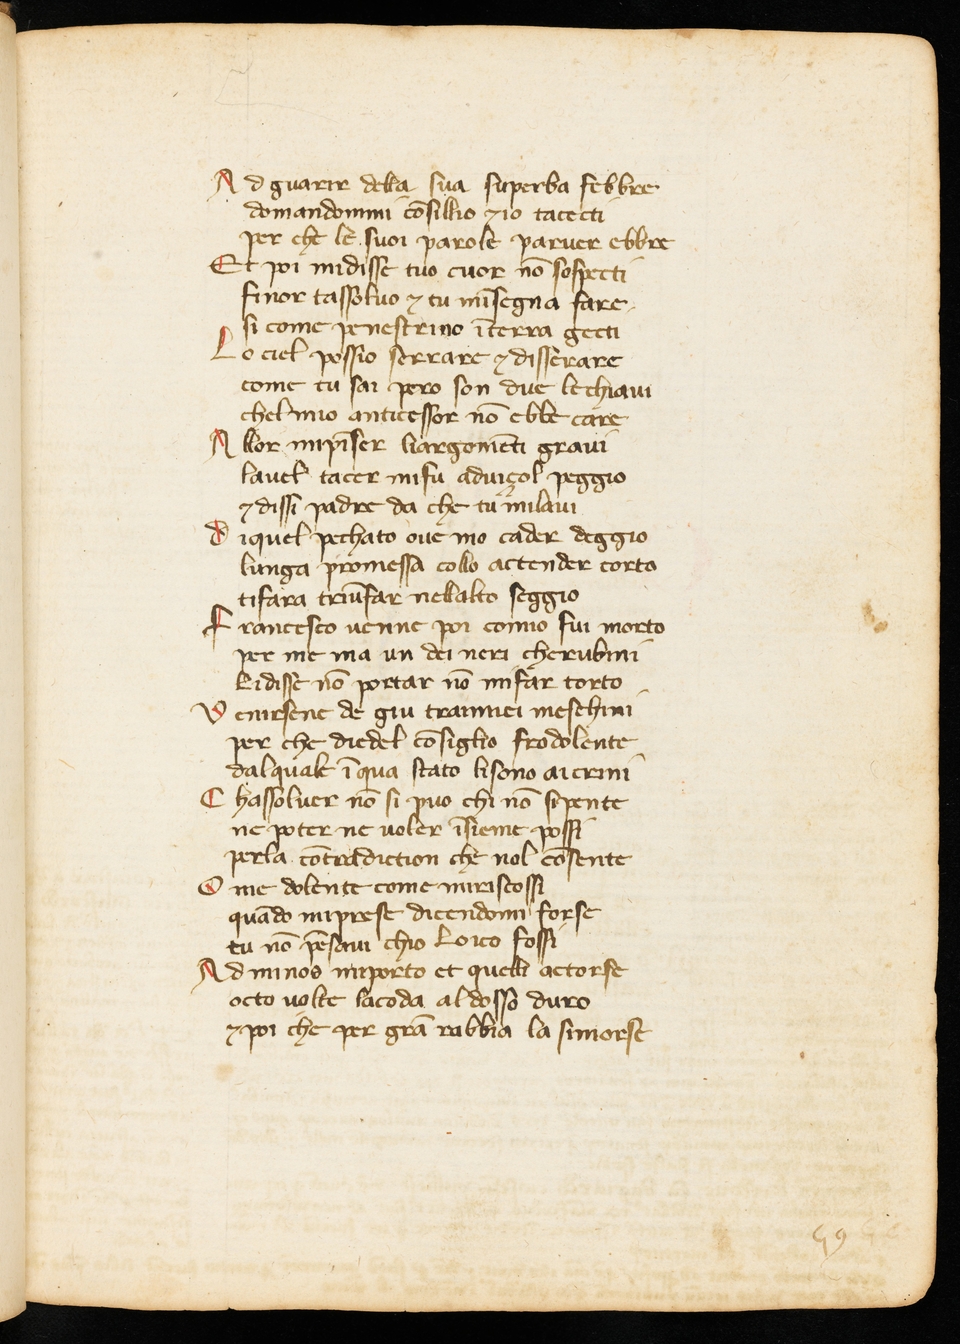 Ad guarir della sua superba febbre
domandommi cōsillio ⁊ io tacecti
per che le suoi parole paruer ebbre
Et poi midisse tuo cuor nō sospecti
finor tassoluo ⁊ tu mīsegna fare
si come penestrino īterra gecti
Lo ciel possio serrare ⁊ disserare
come tu sai pero son due lechiaui
chel mio anticessor nō ebbe care
Allor mipīser liargomēti graui
lauel tacer mifu aduiçol peggio
⁊ dissi padre da che tu milaui
diquel pechato oue mo cader deggio
lunga promessa collo actender corto
tifara triūfar nellalto seggio
Francesco uenne poi comio fui morto
per me ma un dei neri cherubini
lidisse nō portar nō mifar torto
Venirsene de giu tramiei meschini
per che diedel cōsiglio frodolente
dalquale īqua stato lisono aicrini
Chassoluer nō si puo chi nō sipente
ne poter ne uoler īsieme possi
perla contradiction che nol cōsente
O me dolente come miriscossi
quādo miprese dicendomi forse
tu nō pēsaui chio Loico fossi
Ad minos miporto et quelli actorse
octo uolte lacoda al dosso duro
⁊ poi che per grā rabbia la simorse
59